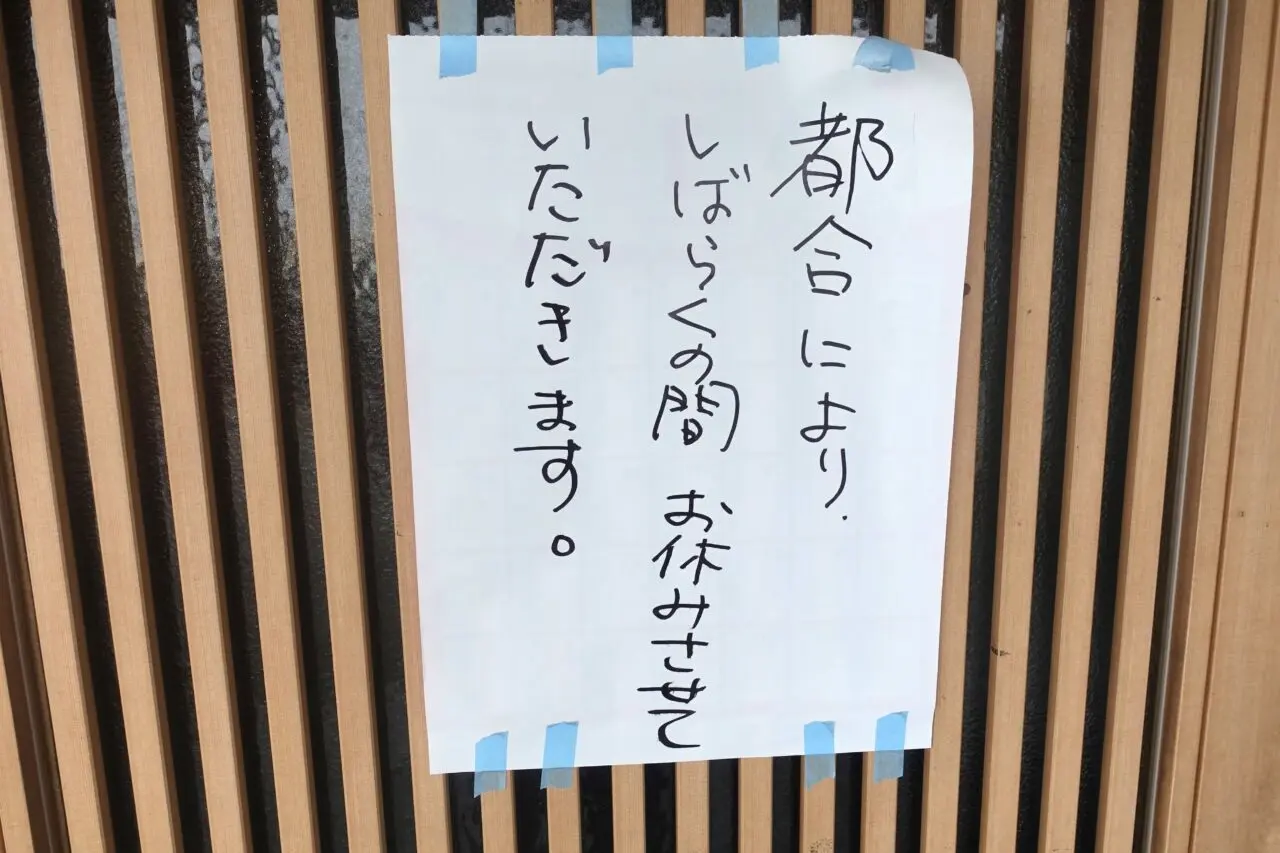 都合により.
しばらくの間 お休みさせて
いただきます。